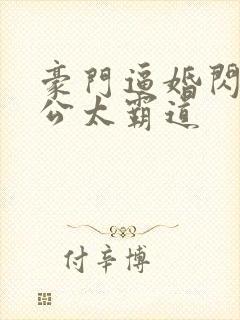 豪門逼婚閃
公太霸道
付辛博